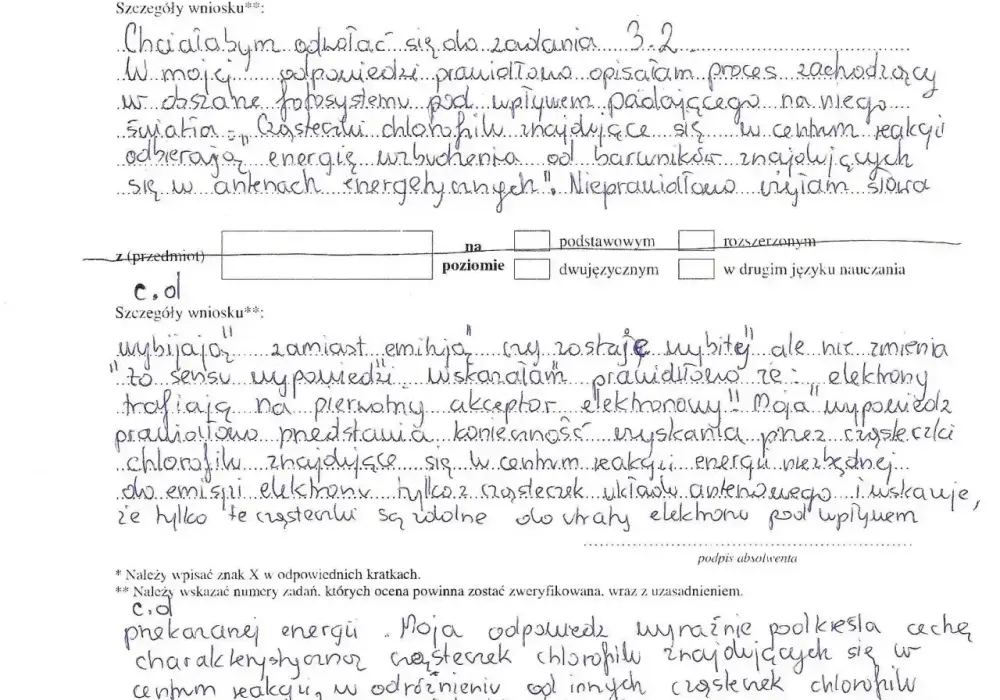 Szczegóły wniosku**:
Chciałabym odwołać się do zadania 3.2
W mojej odpowiedzi prawidłowo opisałam proces zachodzący
w obszarze fotosystemu pod wpływem padającego na niego
światła: "Cząsteczki chlorofilu znajdujące się w centrum reakcji
odbierają" energię wzbudzenia od barwników znajdujących
się w antenach energetycznych". Nieprawidłowo użyłam słowa
z (przedmiot)
na
poziomie
podstawowym
rozszerzonym
dwujęzycznym
w drugim języku nauczania
c.d
Szczegóły wniosku**:
"wybijają" zamiast "emitują" czy "zostaję wybitej" ale nie zmienia
"to sensu wypowiedzi. Wskazałam prawidłowo że: "elektrony
trafiają na pierwotny akceptor elektronowy". Moja wypowiedz
prawidłowo przedstawia konieczność uzyskania przez cząsteczki
chlorofilu znajdujące się w centrum reakcji energii niezbędnej
do emisji elektronu tylko z cząsteczek układu antenowego i wskazuje,
że tylko te cząsteczki są zdolne do utraty elektronu pod wpływem
podpis absolwenta
* Należy wpisać znak X w odpowiednich kratkach.
** Należy wskazać numery zadań, których ocena powinna zostać zweryfikowana, wraz z uzasadnieniem.
c.d
przekazanej energii. Moja odpowiedz wyraźnie podkreśla cechę
charakterystyczną cząsteczek chlorofilu znajdujących się w
centrum reakcji, w odróżnieniu od innych cząsteczek chlorofilu